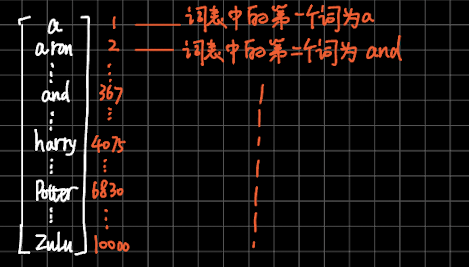 a 1 — 词表中的第一个词为a
aron 2 — 词表中的第二个词为 and
⋮ ⋮
and 367
⋮ ⋮
harry 4075
⋮ ⋮
Potter 6830
⋮ ⋮
Zulu 10000